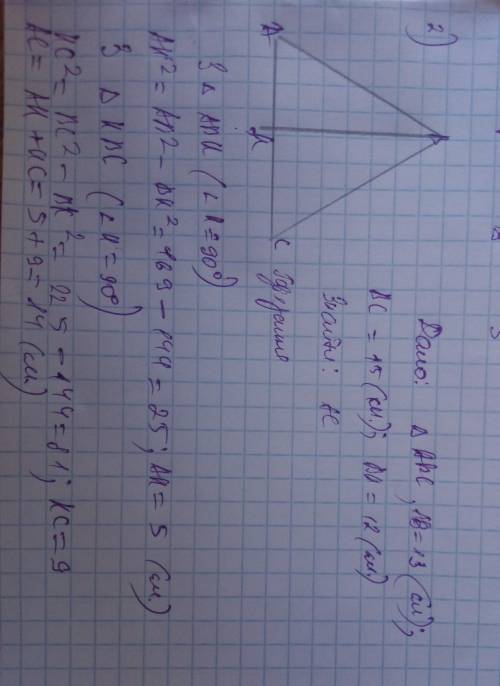 2)
Дано: △ ABC, AB = 13 (см);
BC = 15 (см); BD = 12 (см)
Знайти: AC
A
K
C
З △ ABK (∠K = 90°)
AK² = AB² - BK² = 169 - 144 = 25; AK = 5 (см.)
З △ KBC (∠K = 90°)
KC² = BC² - BK² = 225 - 144 = 81; KC = 9
AC = AK + KC = 5 + 9 = 14 (см.)